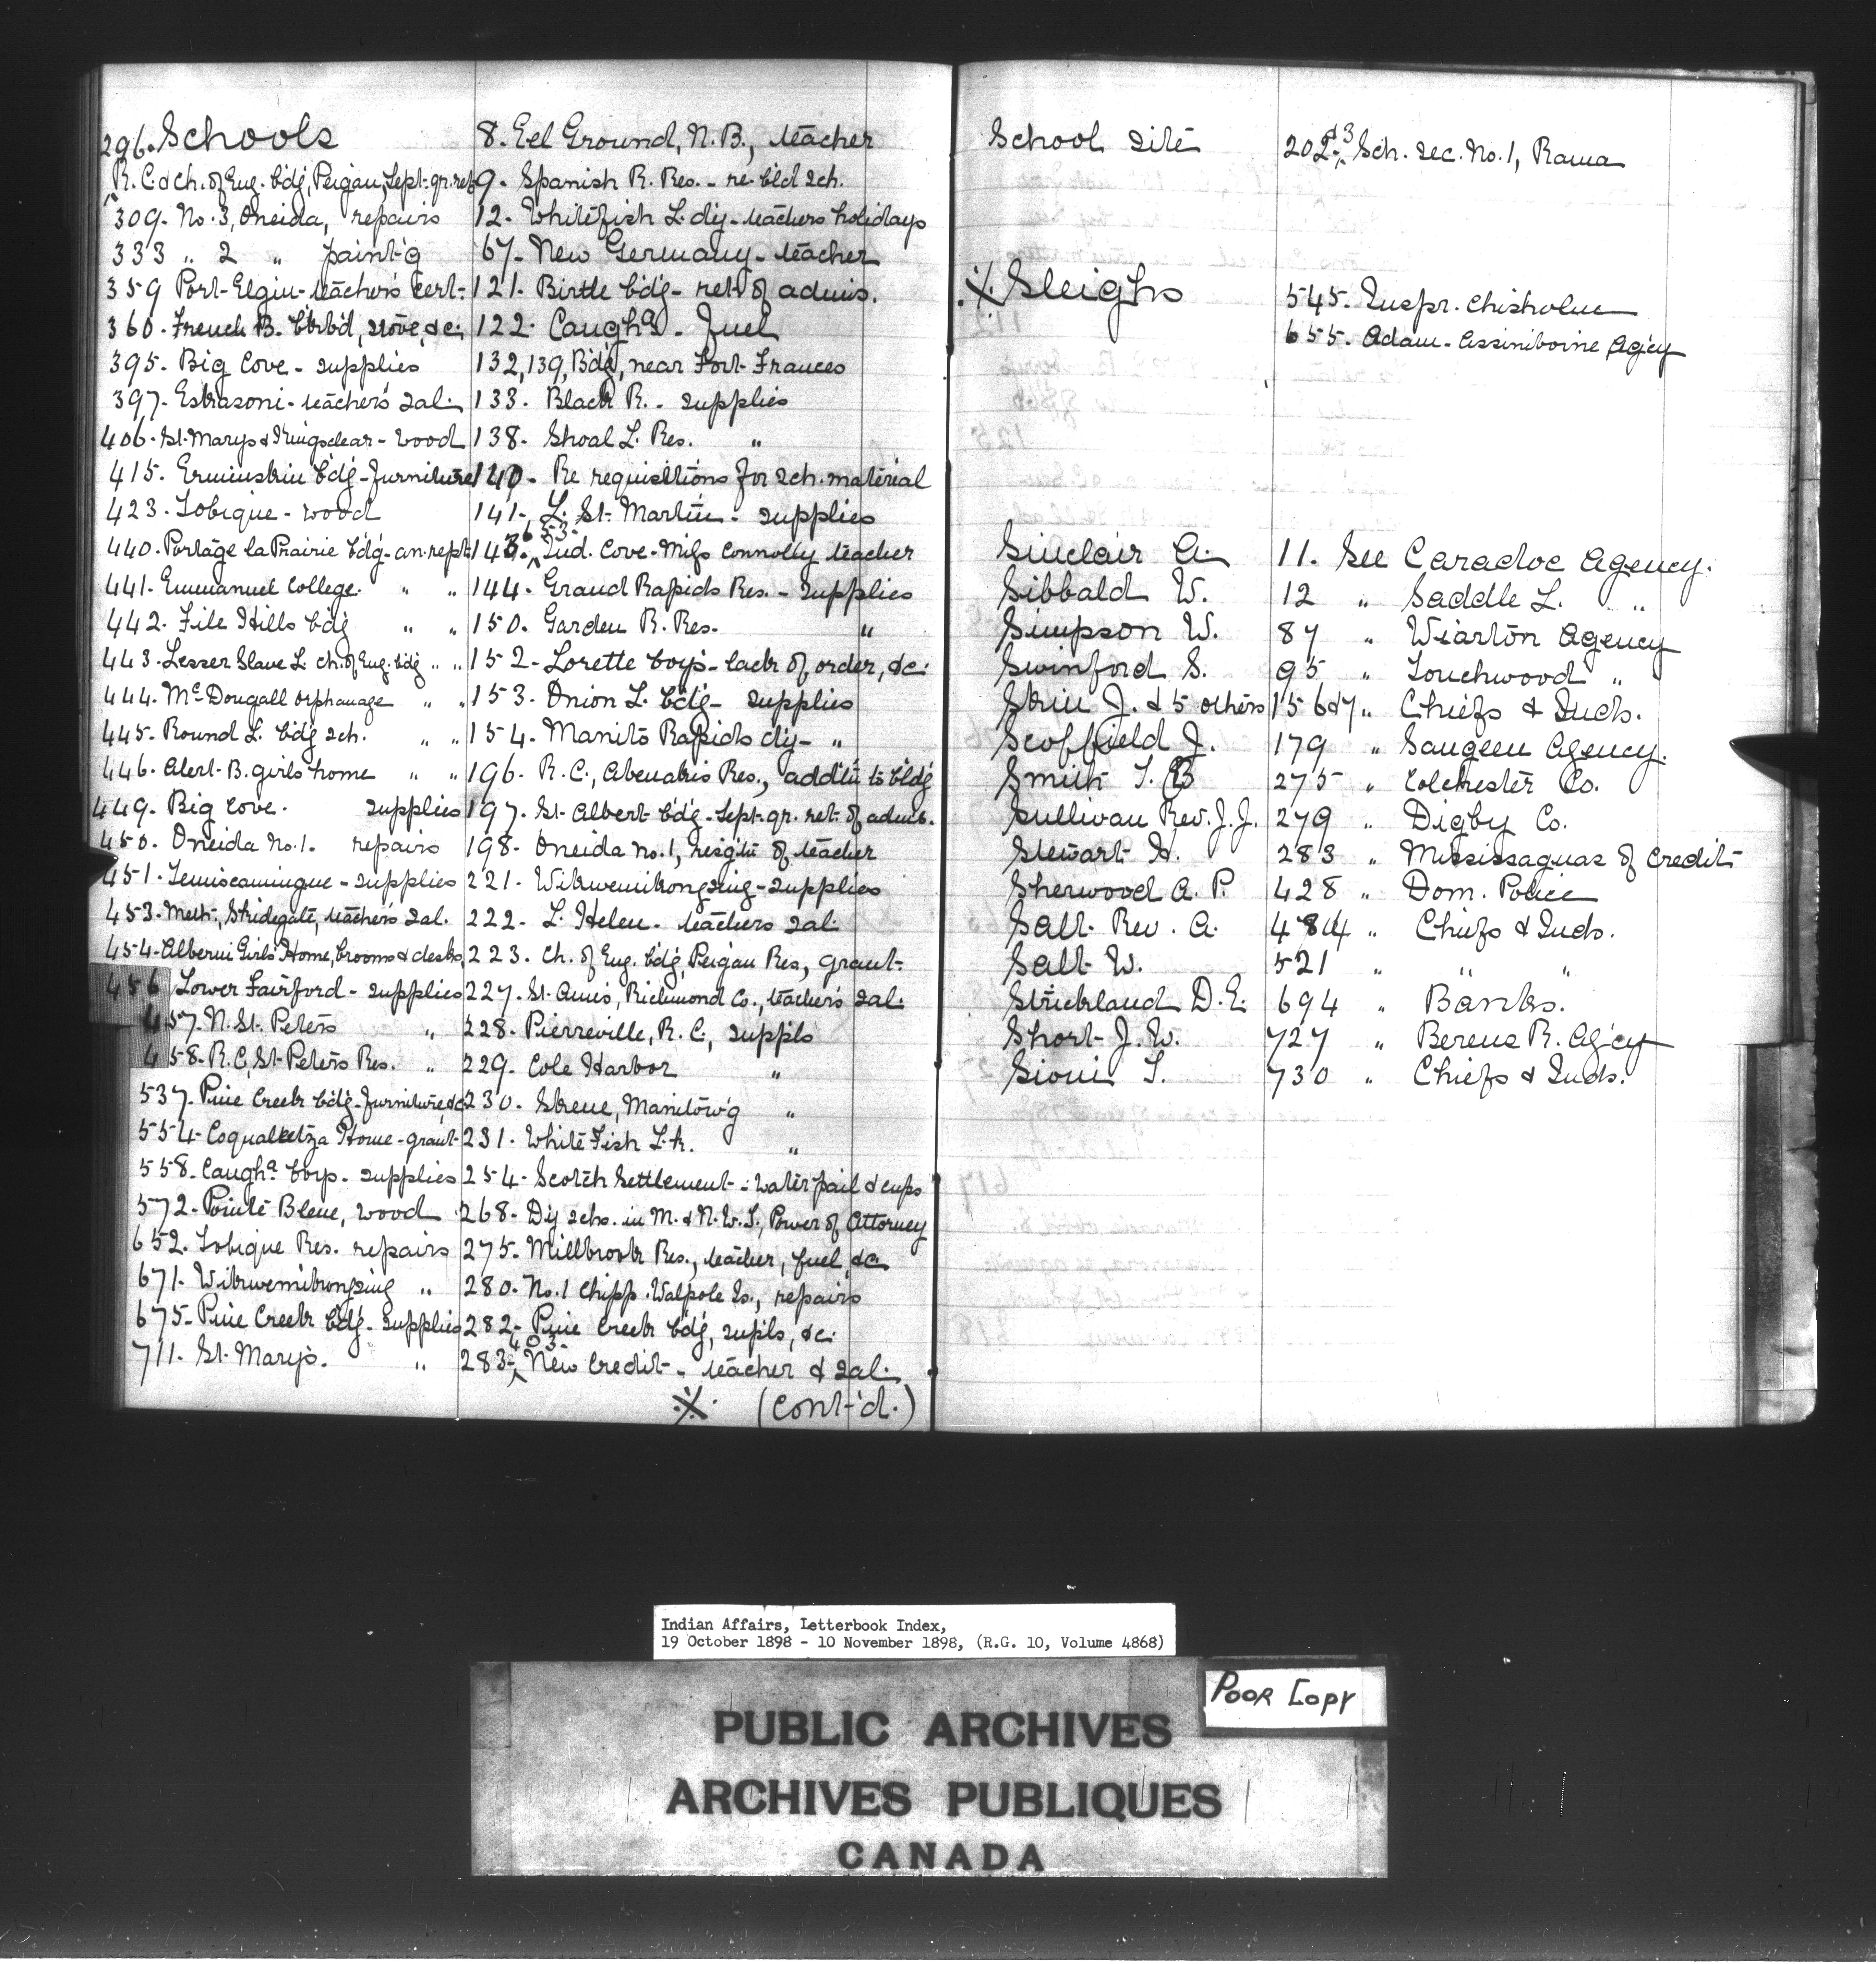 296. Schools
R.C. & ch. of Eng. bdg, Peigan, Sept. qr. ret
309. No. 3, Oneida, repairs
333 " 2 " paint'g
359 Port Elgin - teacher's cert.
360. French B. blkb'd, stove, &c.
395. Big Cove - supplies
397. Eskasoni - teacher's sal.
406. St. Marys & Kingsclear - wood
415. Ermineskin bdg - furniture
423. Tobique - wood
440. Portage la Prairie bdg - an. rept.
441. Emmanuel College. " "
442. File Hills bdg " "
443. Lesser Slave L. ch. of Eng. bdg " "
444. McDougall Orphanage " "
445. Round L. bdg sch. " "
446. Alert B. girls home " "
449. Big Cove. supplies
450. Oneida No. 1. repairs
451. Temiscamingue - supplies
453. Meth., Skidegate, teachers sal.
454. Alberni Girls' Home, brooms & desks
456 Lower Fairford - supplies
457. N. St. Peters "
458. R.C., St. Peters Res. "
537. Pine Creek bdg - furniture &c
554. Coqualeetza Home - grant
558. Caughª boys - supplies
572. Pointe Bleue, wood
652. Tobique Res. repairs
671. Wikwemikongsing "
675. Pine Creek bdg - supplies
711. St. Mary's. "
8. Eel Ground, N.B., teacher
9. Spanish R. Res. - re. bld sch.
12. Whitefish L. dy - teachers holidays
67. New Germany - teacher
121. Birtle bdg - ret. of admis.
122. Caughª - fuel
132, 139, Bdg, near Fort Frances
133. Black R. - supplies
138. Shoal L. Res. "
140. Re requisitions for sch. material
141. L. St. Martin - supplies
143. 653. Ind. Cove - Miss Connolly teacher
144. Grand Rapids Res. - supplies
150. Garden R. Res. "
152. Lorette boys - lack of order, &c.
153. Onion L. bdg - supplies
154. Manito Rapids dy - "
196. R.C., Abenakis Res., addtn to bldg
197. St. Albert bdg - Sept. qr. ret. of admis.
198. Oneida No. 1, resigtn of teacher
221. Wikwemikongsing - supplies
222. L. Helen - teachers sal.
223. Ch. of Eng. bdg, Peigan Res, grant.
227. St. Ann's, Richmond Co., teacher's sal.
228. Pierreville, R.C., suppls
229. Cole Harbor "
230. Skene, Manitow'g "
231. White Fish Lk. "
254. Scotch Settlement - water pail & cups
268. Dy schs. in M. & N.W.T., Power of Attorney
275. Millbrook Res., teacher, fuel, &c.
280. No. 1 Chipp. Walpole Is., repairs
282. Pine Creek bdg, supls, &c.
283, 403. New Credit - teacher & sal.
※ (cont'd.)
School site 202 & 3. Sch. sec. No. 1, Rama
※ Sleighs 545. Inspr. Chisholm
655. Adam - Assiniboine Ag'cy
Sinclair A. 11. See Caradoc Agency.
Sibbald W. 12 " Saddle L. "
Simpson W. 87 " Wiarton Agency
Swinford S. 95 " Touchwood "
Skin J. & 5 others 156 & 7 " Chiefs & Inds.
Scoffield J. 179 " Saugeen Agency.
Smith T. B 275 " Colchester Co.
Sullivan Rev. J. J. 279 " Digby Co.
Stewart H. 283 " Mississaguas of Credit
Sherwood A. P. 428 " Dom. Police
Salt Rev. A. 484 " Chiefs & Inds.
Salt W. 521 " " "
Strickland D. E. 694 " Banks.
Short J. W. 727 " Berens R. Ag'cy
Sioui T. 730 " Chiefs & Inds.
Indian Affairs, Letterbook Index,
19 October 1898 - 10 November 1898, (R.G. 10, Volume 4868)
Poor Copy
PUBLIC ARCHIVES
ARCHIVES PUBLIQUES
CANADA